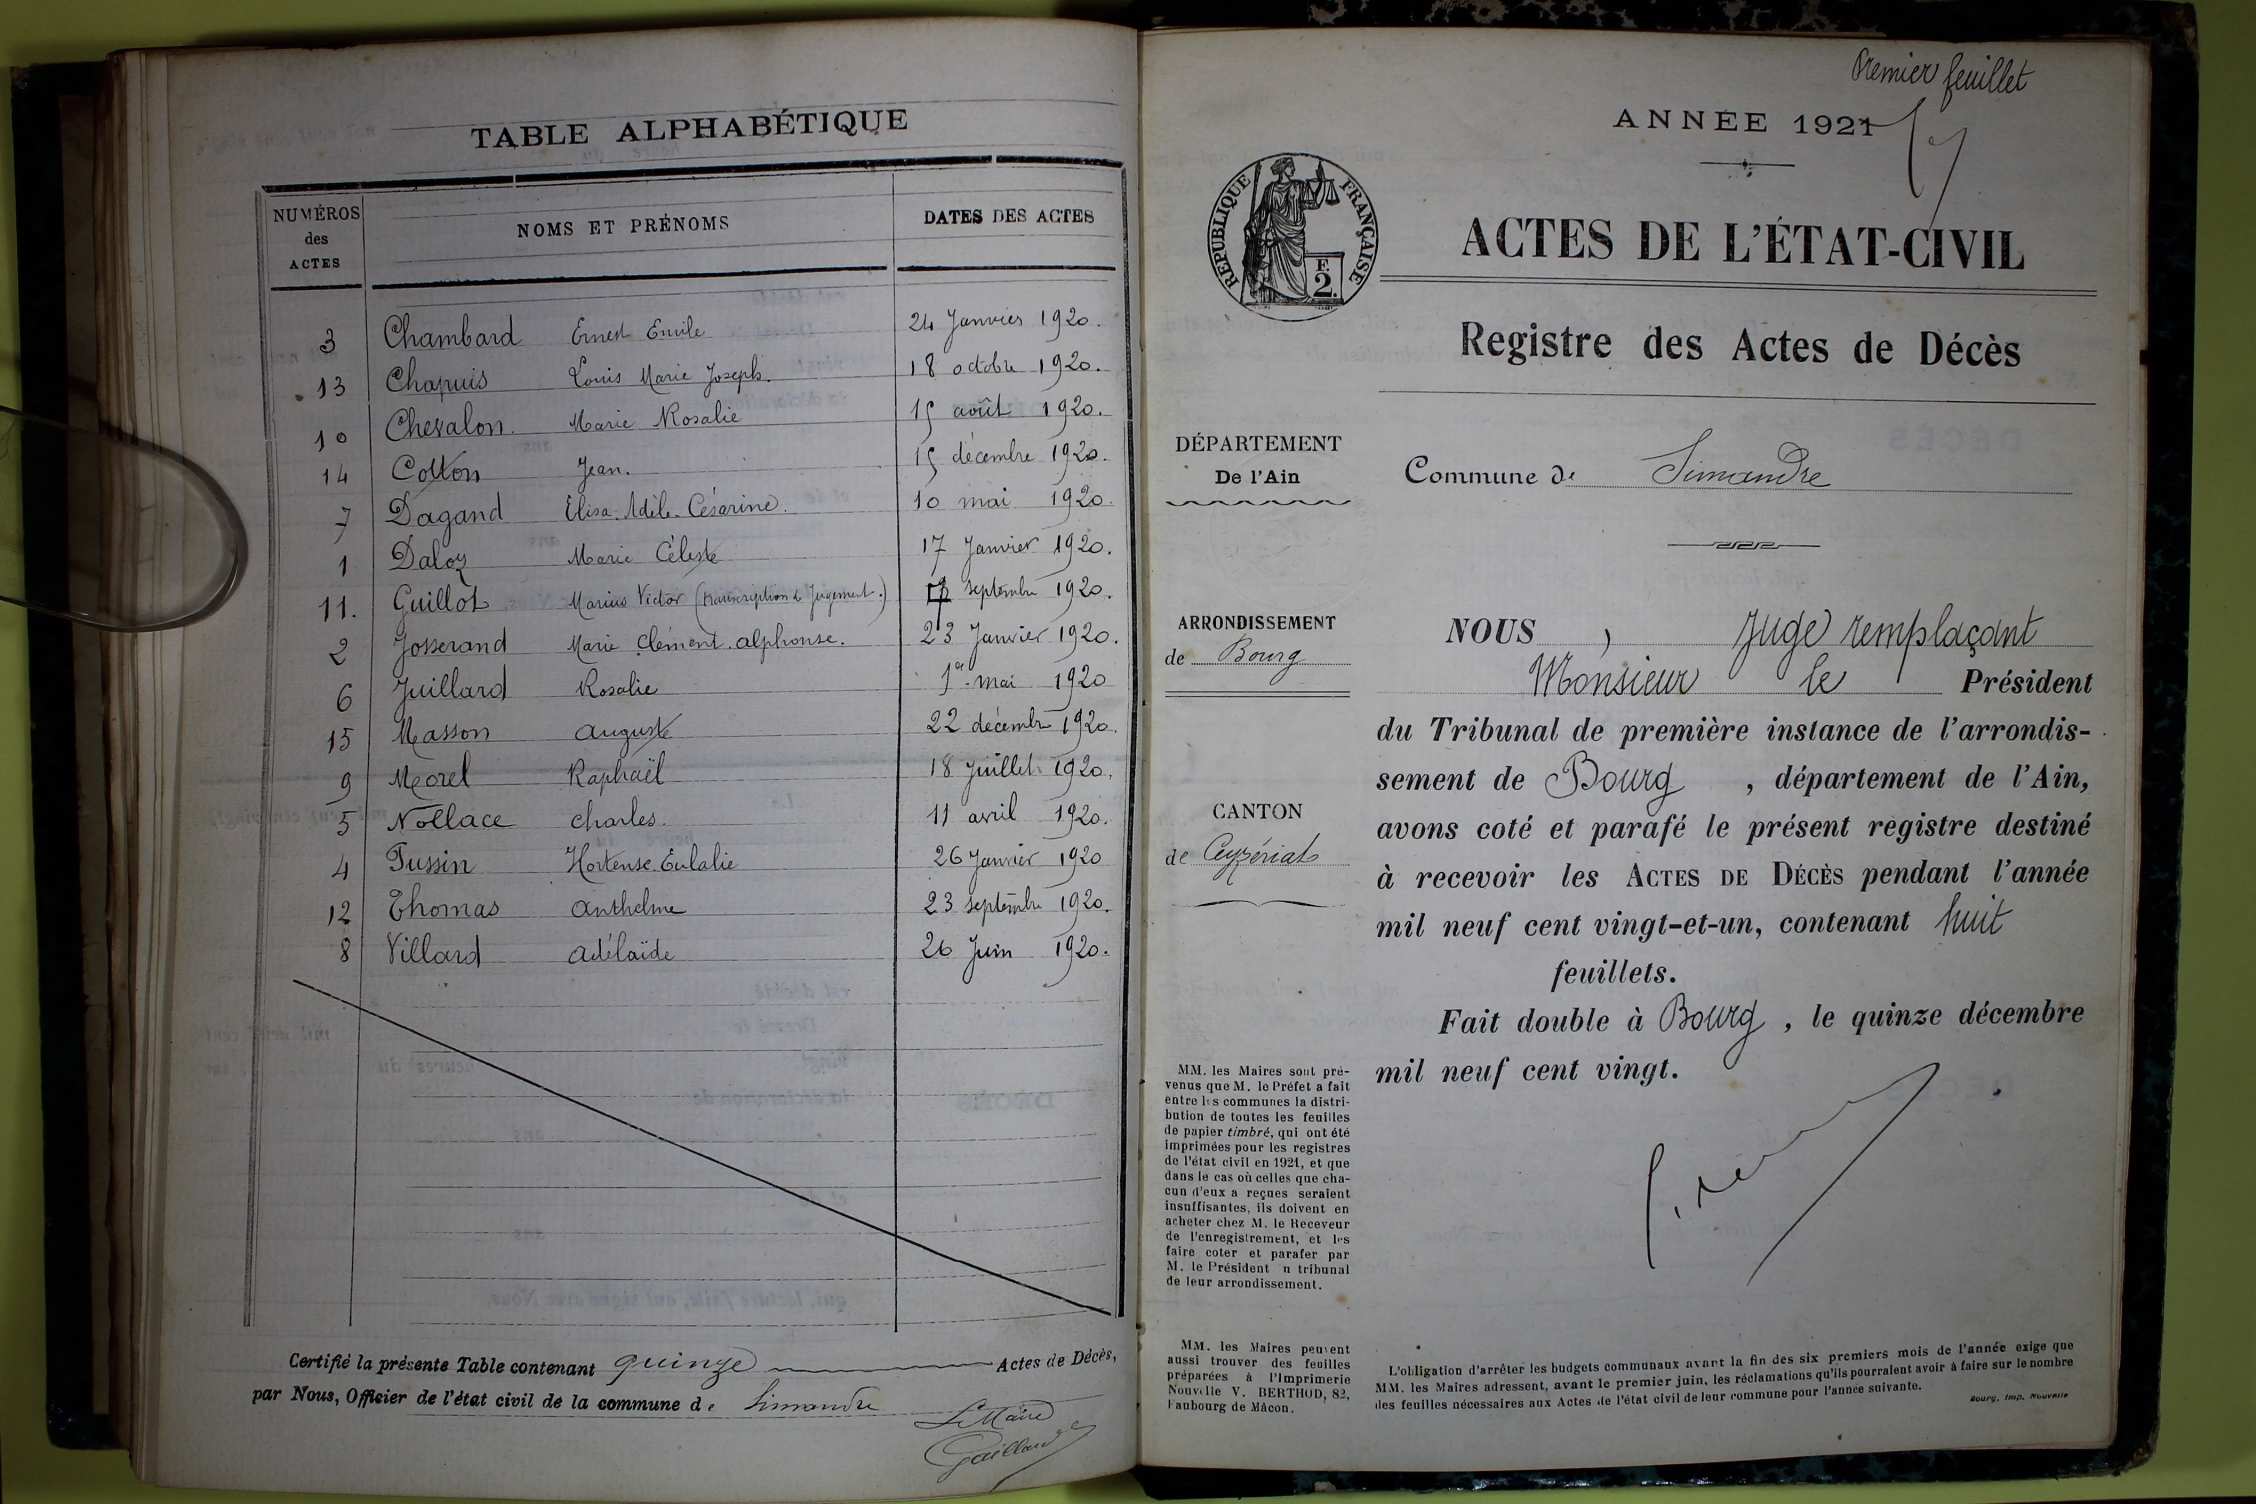 TABLE ALPHABÉTIQUE
NUMÉROS des ACTES
NOMS ET PRÉNOMS
DATES DES ACTES
3 Chambard Ernest Emile 24 Janvier 1920.
13 Chapuis Louis Marie Joseph. 18 octobre 1920.
10 Chevalon. Marie Rosalie 15 août 1920.
14 Cotton Jean. 15 décembre 1920.
7 Dagand Elisa. Adèle. Césarine. 10 mai 1920.
1 Daloz Marie Céleste 17 Janvier 1920.
11. Guillot Marius Victor (transcription de Jugement.) septembre 1920.
2 Josserand Marie Clément. alphonse. 23 Janvier 1920.
6 Juillard Rosalie 1er mai 1920
15 Masson auguste 22 décembre 1920.
9 Morel Raphaël 18 Juillet 1920.
5 Nollace charles. 11 avril 1920.
4 Tussin Hortense. Eulalie 26 Janvier 1920
12 Thomas anthelme 23 septembre 1920.
8 Villard adélaïde 26 Juin 1920.
Certifié la présente Table contenant quinze Actes de Décès,
par Nous, Officier de l'état civil de la commune de Simandre
Le Maire
Premier feuillet
ANNÉE 1921
RÉPUBLIQUE FRANÇAISE
F.
2.
ACTES DE L'ÉTAT-CIVIL
Registre des Actes de Décès
DÉPARTEMENT
De l'Ain
Commune de Simandre
ARRONDISSEMENT
de Bourg
CANTON
de Ceyzériat
NOUS, Juge remplaçant
Monsieur le Président
du Tribunal de première instance de l'arrondis-
sement de Bourg, département de l'Ain,
avons coté et parafé le présent registre destiné
à recevoir les ACTES DE DÉCÈS pendant l'année
mil neuf cent vingt-et-un, contenant huit
feuillets.
Fait double à Bourg, le quinze décembre
mil neuf cent vingt.
MM. les Maires sont pré-
venus que M. le Préfet a fait
entre les communes la distri-
bution de toutes les feuilles
de papier timbré, qui ont été
imprimées pour les registres
de l'état civil en 1921, et que
dans le cas où celles que cha-
cun d'eux a reçues seraient
insuffisantes, ils doivent en
acheter chez M. le Receveur
de l'enregistrement, et les
faire coter et parafer par
M. le Président n tribunal
de leur arrondissement.
MM. les Maires peuvent
aussi trouver des feuilles
préparées à l'Imprimerie
Nouvelle V. BERTHOD, 82,
Faubourg de Mâcon.
L'obligation d'arrêter les budgets communaux avant la fin des six premiers mois de l'année exige que
MM. les Maires adressent, avant le premier juin, les réclamations qu'ils pourraient avoir à faire sur le nombre
des feuilles nécessaires aux Actes de l'état civil de leur commune pour l'année suivante.
Bourg, Imp. Nouvelle